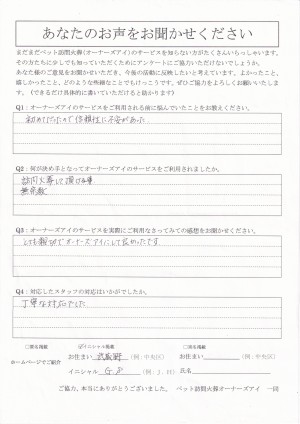 あなたのお声をお聞かせください
まだまだペット訪問火葬(オーナーズアイ)のサービスを知らない方がたくさんいらっしゃいます。
その方たちに少しでも知っていただくためにアンケートにご協力いただけないでしょうか。
あなた様のご意見をお聞かせいただき、今後の活動に反映したいと考えています。よかったこと、
嬉しかったこと、どのような些細なことでもけっこうです。ぜひ協力をよろしくお願いいたしま
す。(できるだけ具体的に書いていただけると助かります)
Q1：オーナーズアイのサービスをご利用される前に悩んでいたことをお教えください。
初めてだったので信頼性に不安があった
Q2：何が決め手となってオーナーズアイのサービスをご利用されましたか。
訪問火葬して頂ける事
無宗教
Q3：オーナーズアイのサービスを実際にご利用なさってみての感想をお聞かせください。
とても親切でオーナーズアイにして良かったです
Q4：対応したスタッフの対応はいかがでしたか。
丁寧な対応でした
□匿名掲載 ☑イニシャル掲載 □実名掲載
お住まい 武蔵野 (例：中央区) お住まい (例：中央区)
ホームページでご紹介
イニシャル G.S (例：J．H) 氏名
ご協力、本当にありがとうございました。 ペット訪問火葬オーナーズアイ 一同